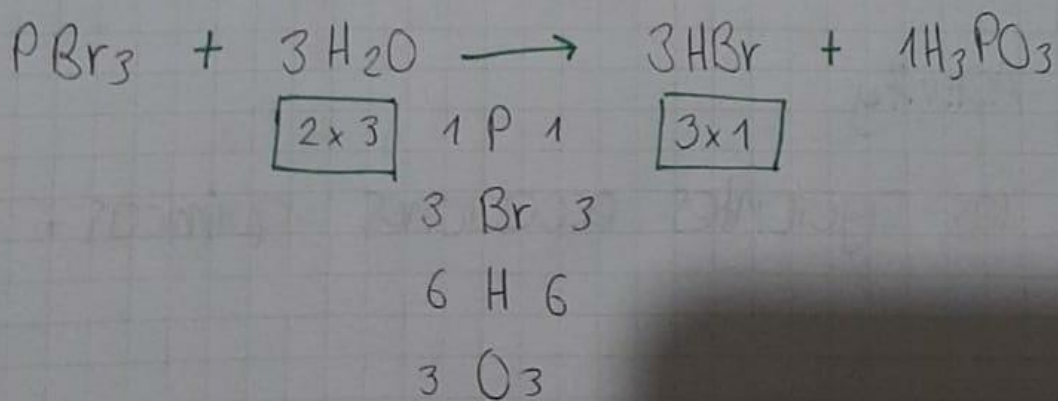 PBr₃ + 3H₂O ⟶ 3HBr + 1H₃PO₃
2x3 1 P 1 3x1
3 Br 3
6 H 6
3 O 3